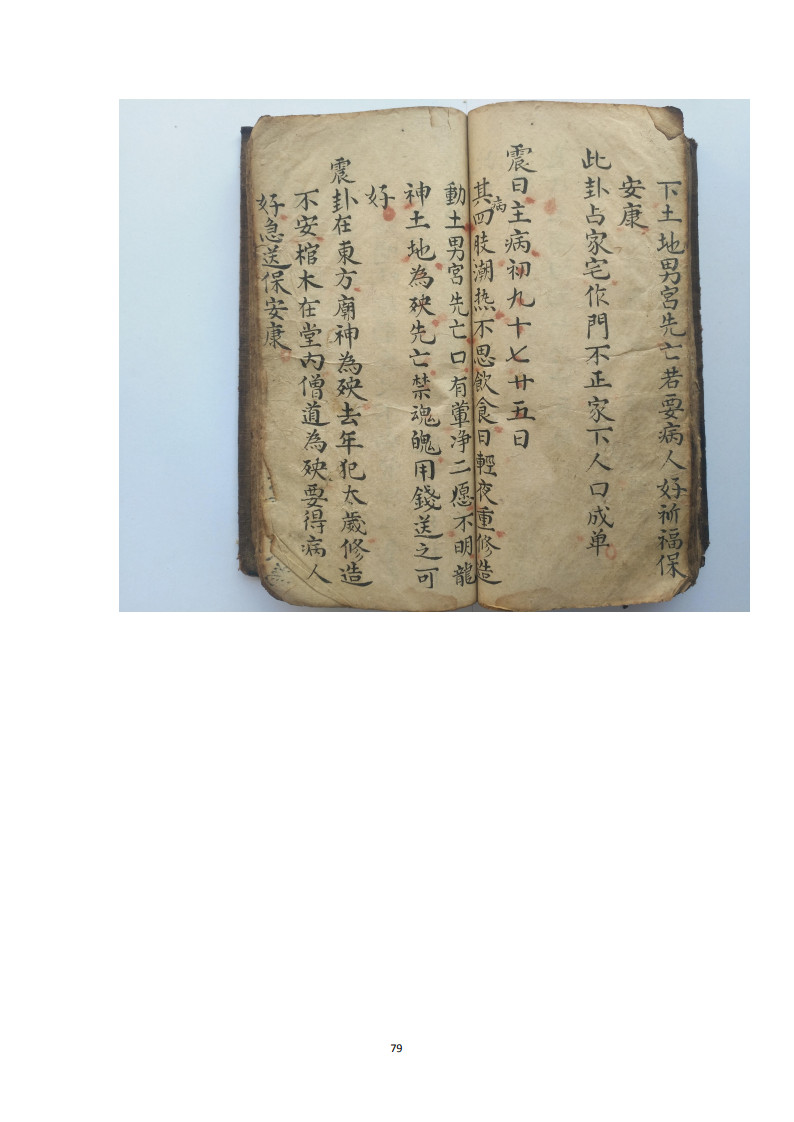 下土地男宮先亡若要病人好祈福保
安康
此卦占家宅作門不正家下人口成单
震日主病初九十七廿五日
其病四肢潮热不思飲食日輕夜重修造
動土男宮先亡口有葷净二愿不明龍
神土地為殃先亡禁魂魄用錢送之可
好
震卦在東方廟神為殃去年犯太歲修造
不安棺木在堂内僧道為殃要得病人
好急送保安康
79